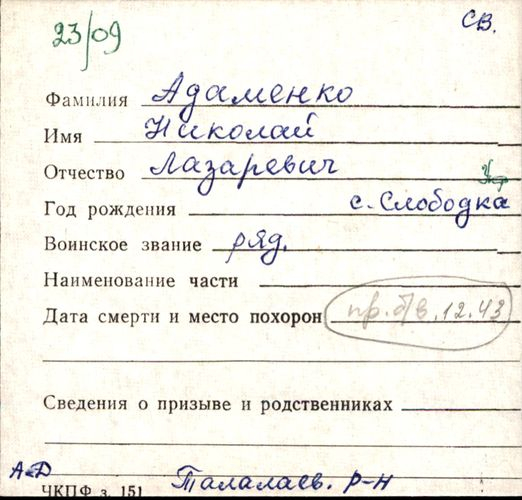 23/09
СВ.
Фамилия Адаменко
Имя Николай
Отчество Лазаревич
Укр
Год рождения с. Слободка
Воинское звание ряд.
Наименование части
Дата смерти и место похорон пр. б/в. 12.43
Сведения о призыве и родственниках
АД
ЧКПФ з. 151 Талалаев. р-н